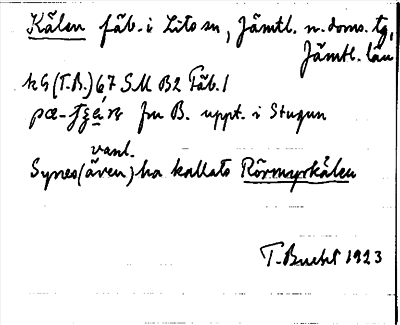 Kälen fäb. i Lits sn, Jämtl. n. doms. tg,
Jämtl. län
kG (T.B.) 67 S.M B2 Fäb. 1
fru B. uppt. i Stugun
vanl.
Synes (även) ha kallats Rörmyrkälen
T. Bucht 1923